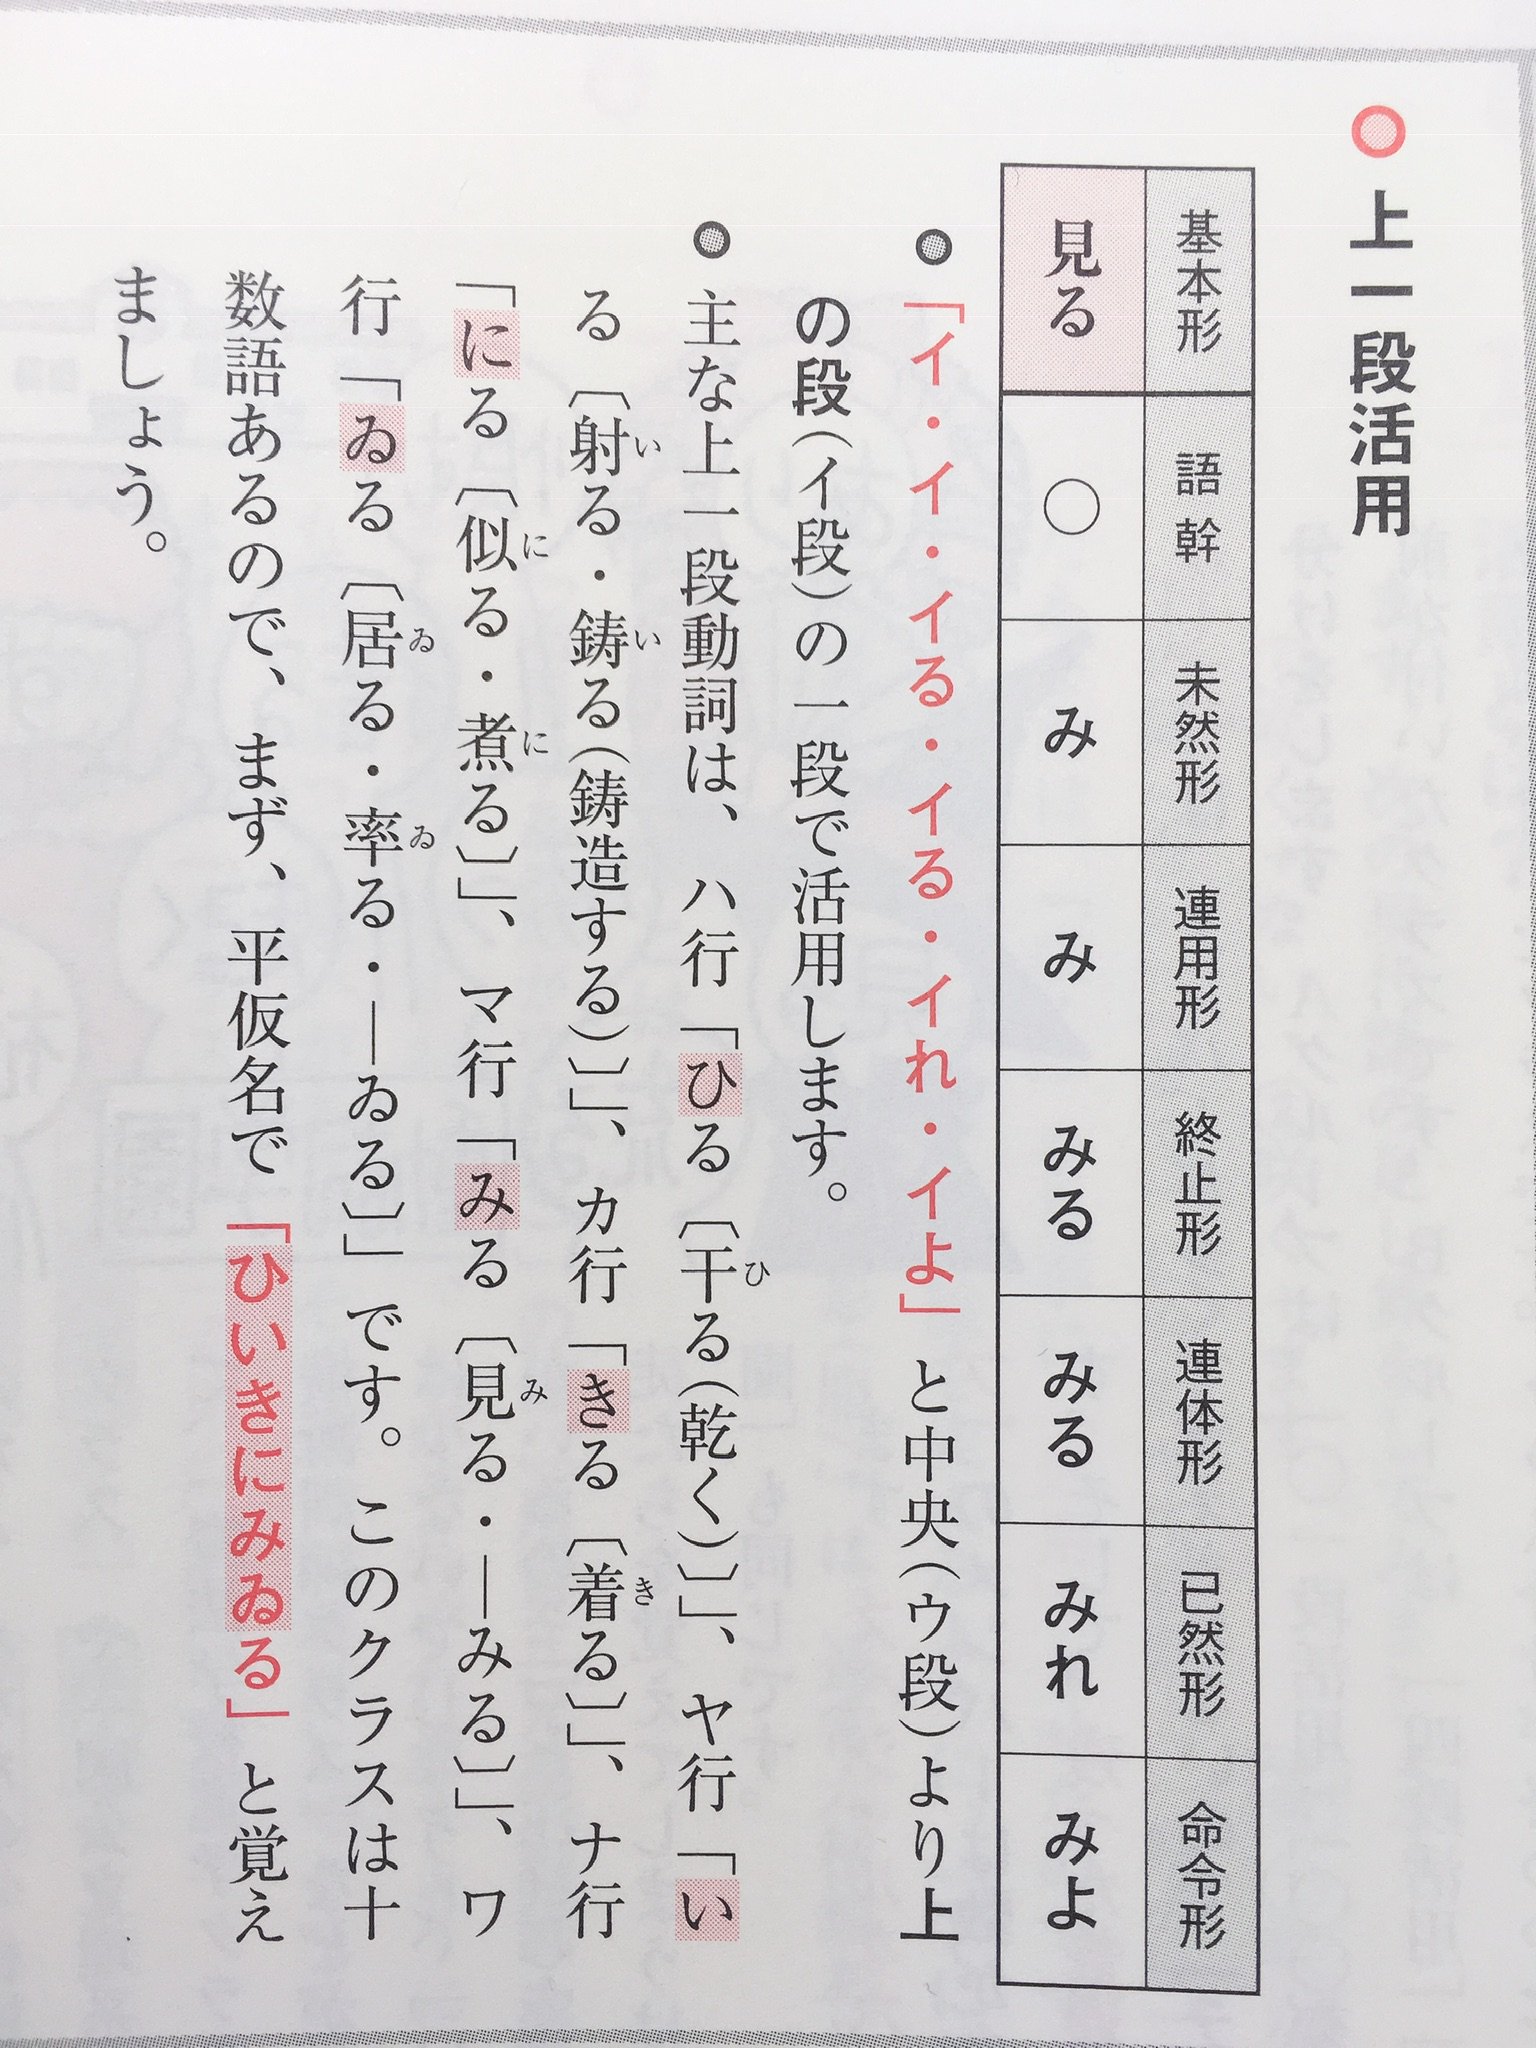 上一段活用
基本形 見る
語幹 ○
未然形 み
連用形 み
終止形 みる
連体形 みる
已然形 みれ
命令形 みよ
「イ・イ・イる・イる・イれ・イよ」と中央(ウ段)より上
の段(イ段)の一段で活用します。
主な上一段動詞は、ハ行「ひる〔干る(乾く)〕」、ヤ行「い
る〔射る・鋳る(鋳造する)〕」、カ行「きる〔着る〕」、ナ行
「にる〔似る・煮る〕」、マ行「みる〔見る・―みる〕」、ワ
行「ゐる〔居る・率る・―ゐる〕」です。このクラスは十
数語あるので、まず、平仮名で「ひいきにみゐる」と覚え
ましょう。